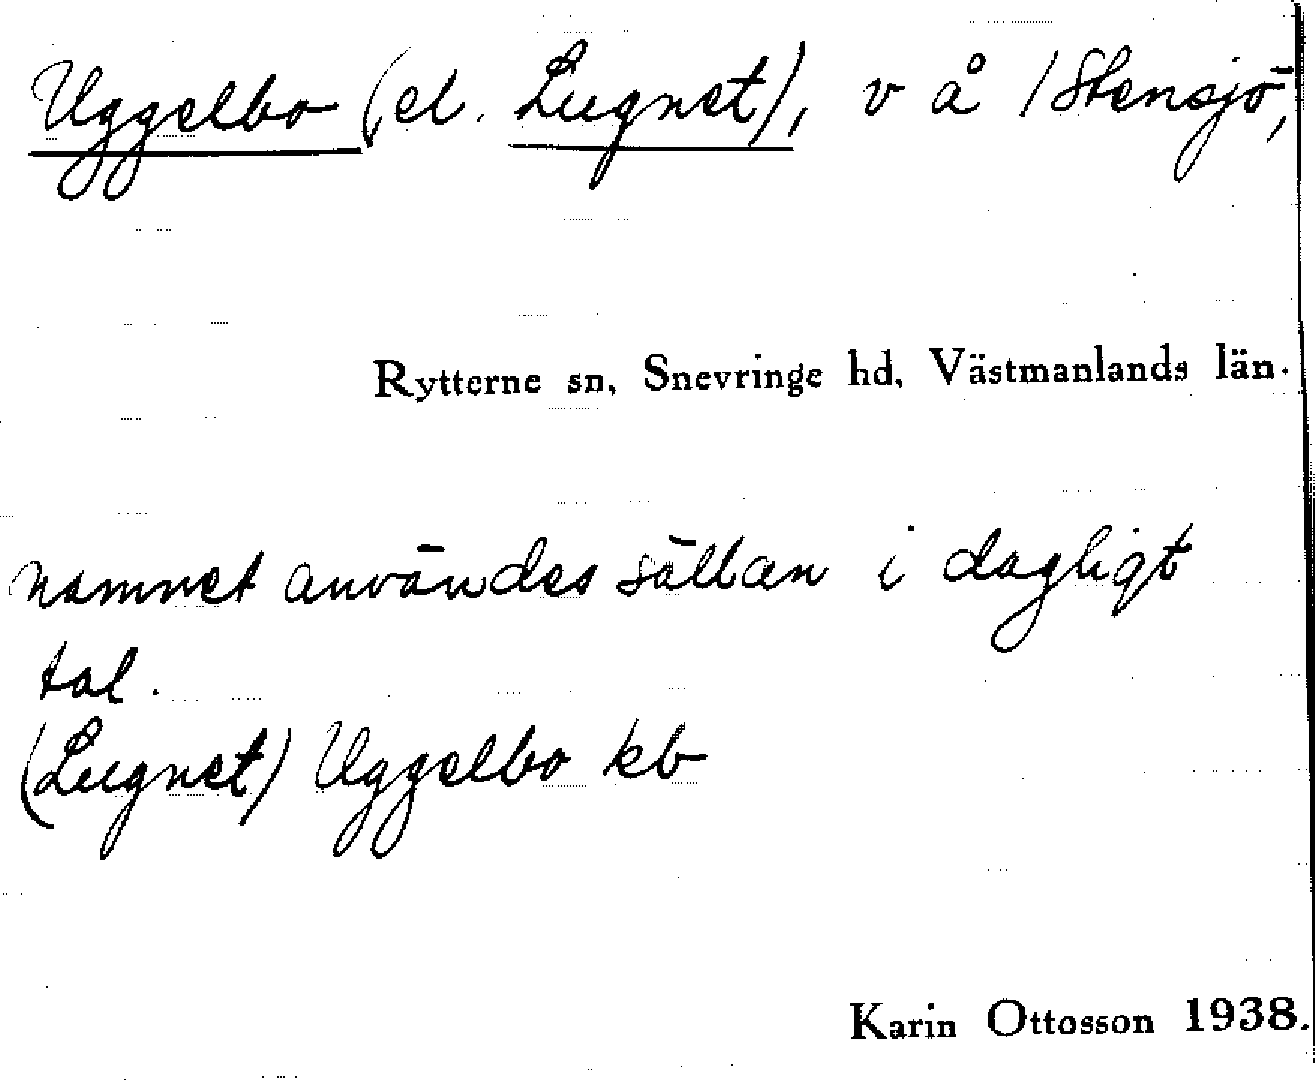 Uggelbo (el. Lugnet), v å /Stensjö,
Rytterne sn, Snevringe hd, Västmanlands län.
namnet användes sällan i dagligt
tal.
(Lugnet) Uggelbo kb
Karin Ottosson 1938.